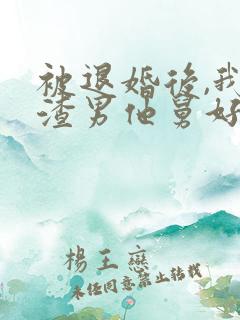 被退婚後,我
渣男他舅好
楊王戀
未经同意禁止转载